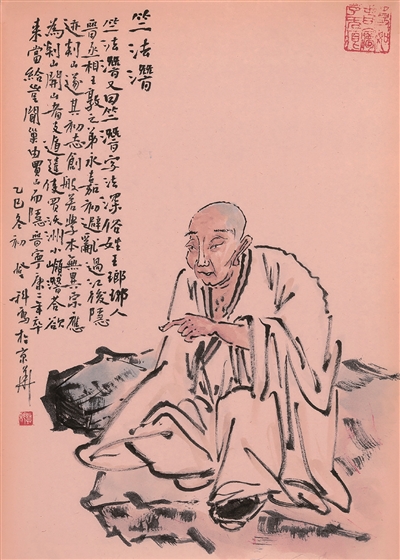 竺法潛
竺法潛又曰竺潛字法深俗姓王瑯琊人
晉丞相王敦之弟永嘉初避亂過江後隱
迹剡山遂其初志創般若學本無異宗應
為剡山開山者支遁遣使買沃洲小嶺潛答欲
來當給豈聞巢由買山而隱晉寧康年卒
乙巳冬初 科寫於京華